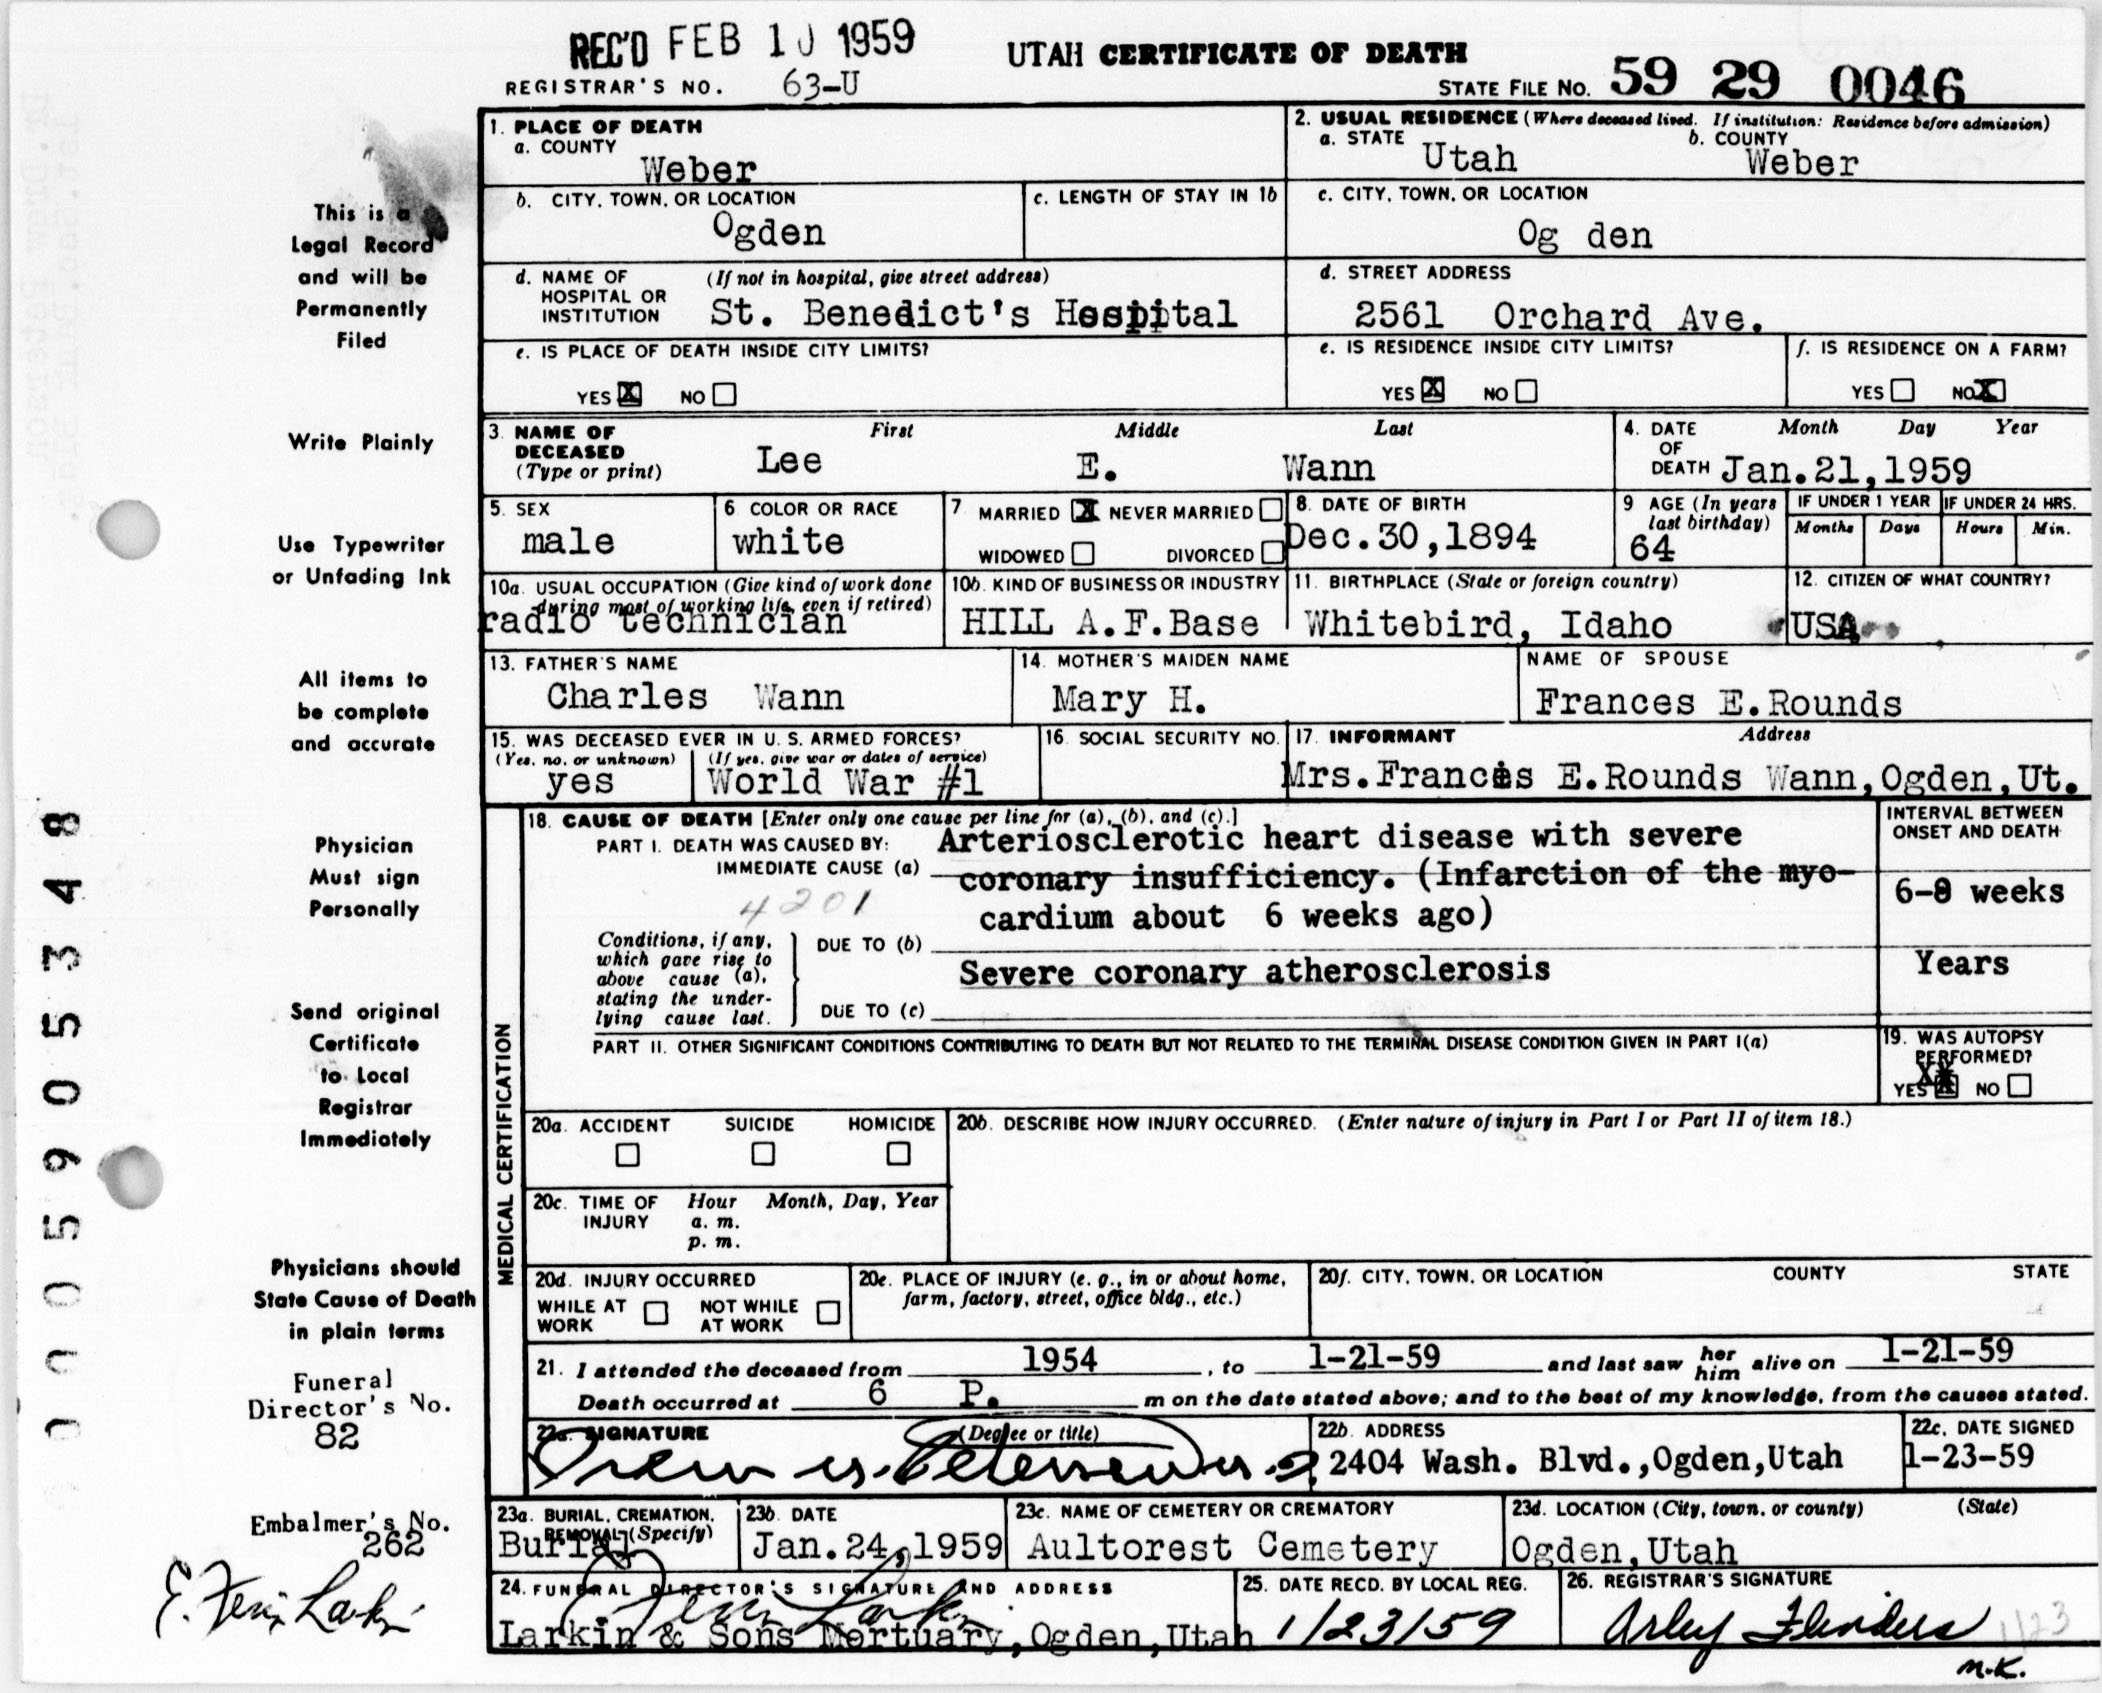 REC'D FEB 10 1959
UTAH CERTIFICATE OF DEATH
REGISTRAR'S NO. 63-U
STATE FILE NO. 59 29 0046
1. PLACE OF DEATH
a. COUNTY
Weber
2. USUAL RESIDENCE (Where deceased lived. If institution: Residence before admission)
a. STATE Utah b. COUNTY Weber
b. CITY, TOWN, OR LOCATION
Ogden
c. LENGTH OF STAY IN 1b
c. CITY, TOWN, OR LOCATION
Og den
d. NAME OF HOSPITAL OR INSTITUTION (If not in hospital, give street address)
St. Benedict's Hospital
d. STREET ADDRESS
2561 Orchard Ave.
e. IS PLACE OF DEATH INSIDE CITY LIMITS?
YES X NO
e. IS RESIDENCE INSIDE CITY LIMITS?
YES X NO
f. IS RESIDENCE ON A FARM?
YES NO X
3. NAME OF DECEASED (Type or print)
First Middle Last
Lee E. Wann
4. DATE OF DEATH
Month Day Year
Jan.21,1959
5. SEX
male
6 COLOR OR RACE
white
7 MARRIED X NEVER MARRIED
WIDOWED DIVORCED
8. DATE OF BIRTH
Dec.30,1894
9 AGE (In years last birthday)
64
IF UNDER 1 YEAR
Months Days
IF UNDER 24 HRS.
Hours Min.
10a. USUAL OCCUPATION (Give kind of work done during most of working life, even if retired)
radio technician
10b. KIND OF BUSINESS OR INDUSTRY
HILL A.F.Base
11. BIRTHPLACE (State or foreign country)
Whitebird, Idaho
12. CITIZEN OF WHAT COUNTRY?
USA
13. FATHER'S NAME
Charles Wann
14. MOTHER'S MAIDEN NAME
Mary H.
NAME OF SPOUSE
Frances E.Rounds
15. WAS DECEASED EVER IN U. S. ARMED FORCES?
(Yes, no, or unknown) (If yes, give war or dates of service)
yes World War #1
16. SOCIAL SECURITY NO.
17. INFORMANT Address
Mrs.Frances E.Rounds Wann,Ogden,Ut.
MEDICAL CERTIFICATION
18. CAUSE OF DEATH [Enter only one cause per line for (a), (b), and (c).]
PART I. DEATH WAS CAUSED BY:
IMMEDIATE CAUSE (a)
Arteriosclerotic heart disease with severe
coronary insufficiency. (Infarction of the myo-
cardium about 6 weeks ago)
4201
INTERVAL BETWEEN ONSET AND DEATH
6-8 weeks
Conditions, if any, which gave rise to above cause (a), stating the underlying cause last.
DUE TO (b)
Severe coronary atherosclerosis
Years
DUE TO (c)
PART II. OTHER SIGNIFICANT CONDITIONS CONTRIBUTING TO DEATH BUT NOT RELATED TO THE TERMINAL DISEASE CONDITION GIVEN IN PART I(a)
19. WAS AUTOPSY PERFORMED?
YES X NO
20a. ACCIDENT SUICIDE HOMICIDE
20b. DESCRIBE HOW INJURY OCCURRED. (Enter nature of injury in Part I or Part II of item 18.)
20c. TIME OF INJURY Hour Month, Day, Year
a. m.
p. m.
20d. INJURY OCCURRED
WHILE AT WORK NOT WHILE AT WORK
20e. PLACE OF INJURY (e. g., in or about home, farm, factory, street, office bldg., etc.)
20f. CITY, TOWN, OR LOCATION COUNTY STATE
21. I attended the deceased from 1954, to 1-21-59 and last saw her him alive on 1-21-59
Death occurred at 6 P. m on the date stated above; and to the best of my knowledge, from the causes stated.
22a. SIGNATURE (Degree or title)
Drew W. Petersen M.D.
22b. ADDRESS
2404 Wash. Blvd.,Ogden,Utah
22c. DATE SIGNED
1-23-59
23a. BURIAL, CREMATION, REMOVAL (Specify)
Burial
23b. DATE
Jan.24,1959
23c. NAME OF CEMETERY OR CREMATORY
Aultorest Cemetery
23d. LOCATION (City, town, or county) (State)
Ogden,Utah
24. FUNERAL DIRECTOR'S SIGNATURE AND ADDRESS
Larkin & Sons Mortuary,Ogden,Utah
25. DATE RECD. BY LOCAL REG.
1/23/59
26. REGISTRAR'S SIGNATURE
Arley Flinders
1/23
M.K.
This is a
Legal Record
and will be
Permanently
Filed
Write Plainly
Use Typewriter
or Unfading Ink
All items to
be complete
and accurate
Physician
Must sign
Personally
Send original
Certificate
to Local
Registrar
Immediately
Physicians should
State Cause of Death
in plain terms
Funeral
Director's No.
82
Embalmer's No.
262
E. Ferrin Larkin
0005905348